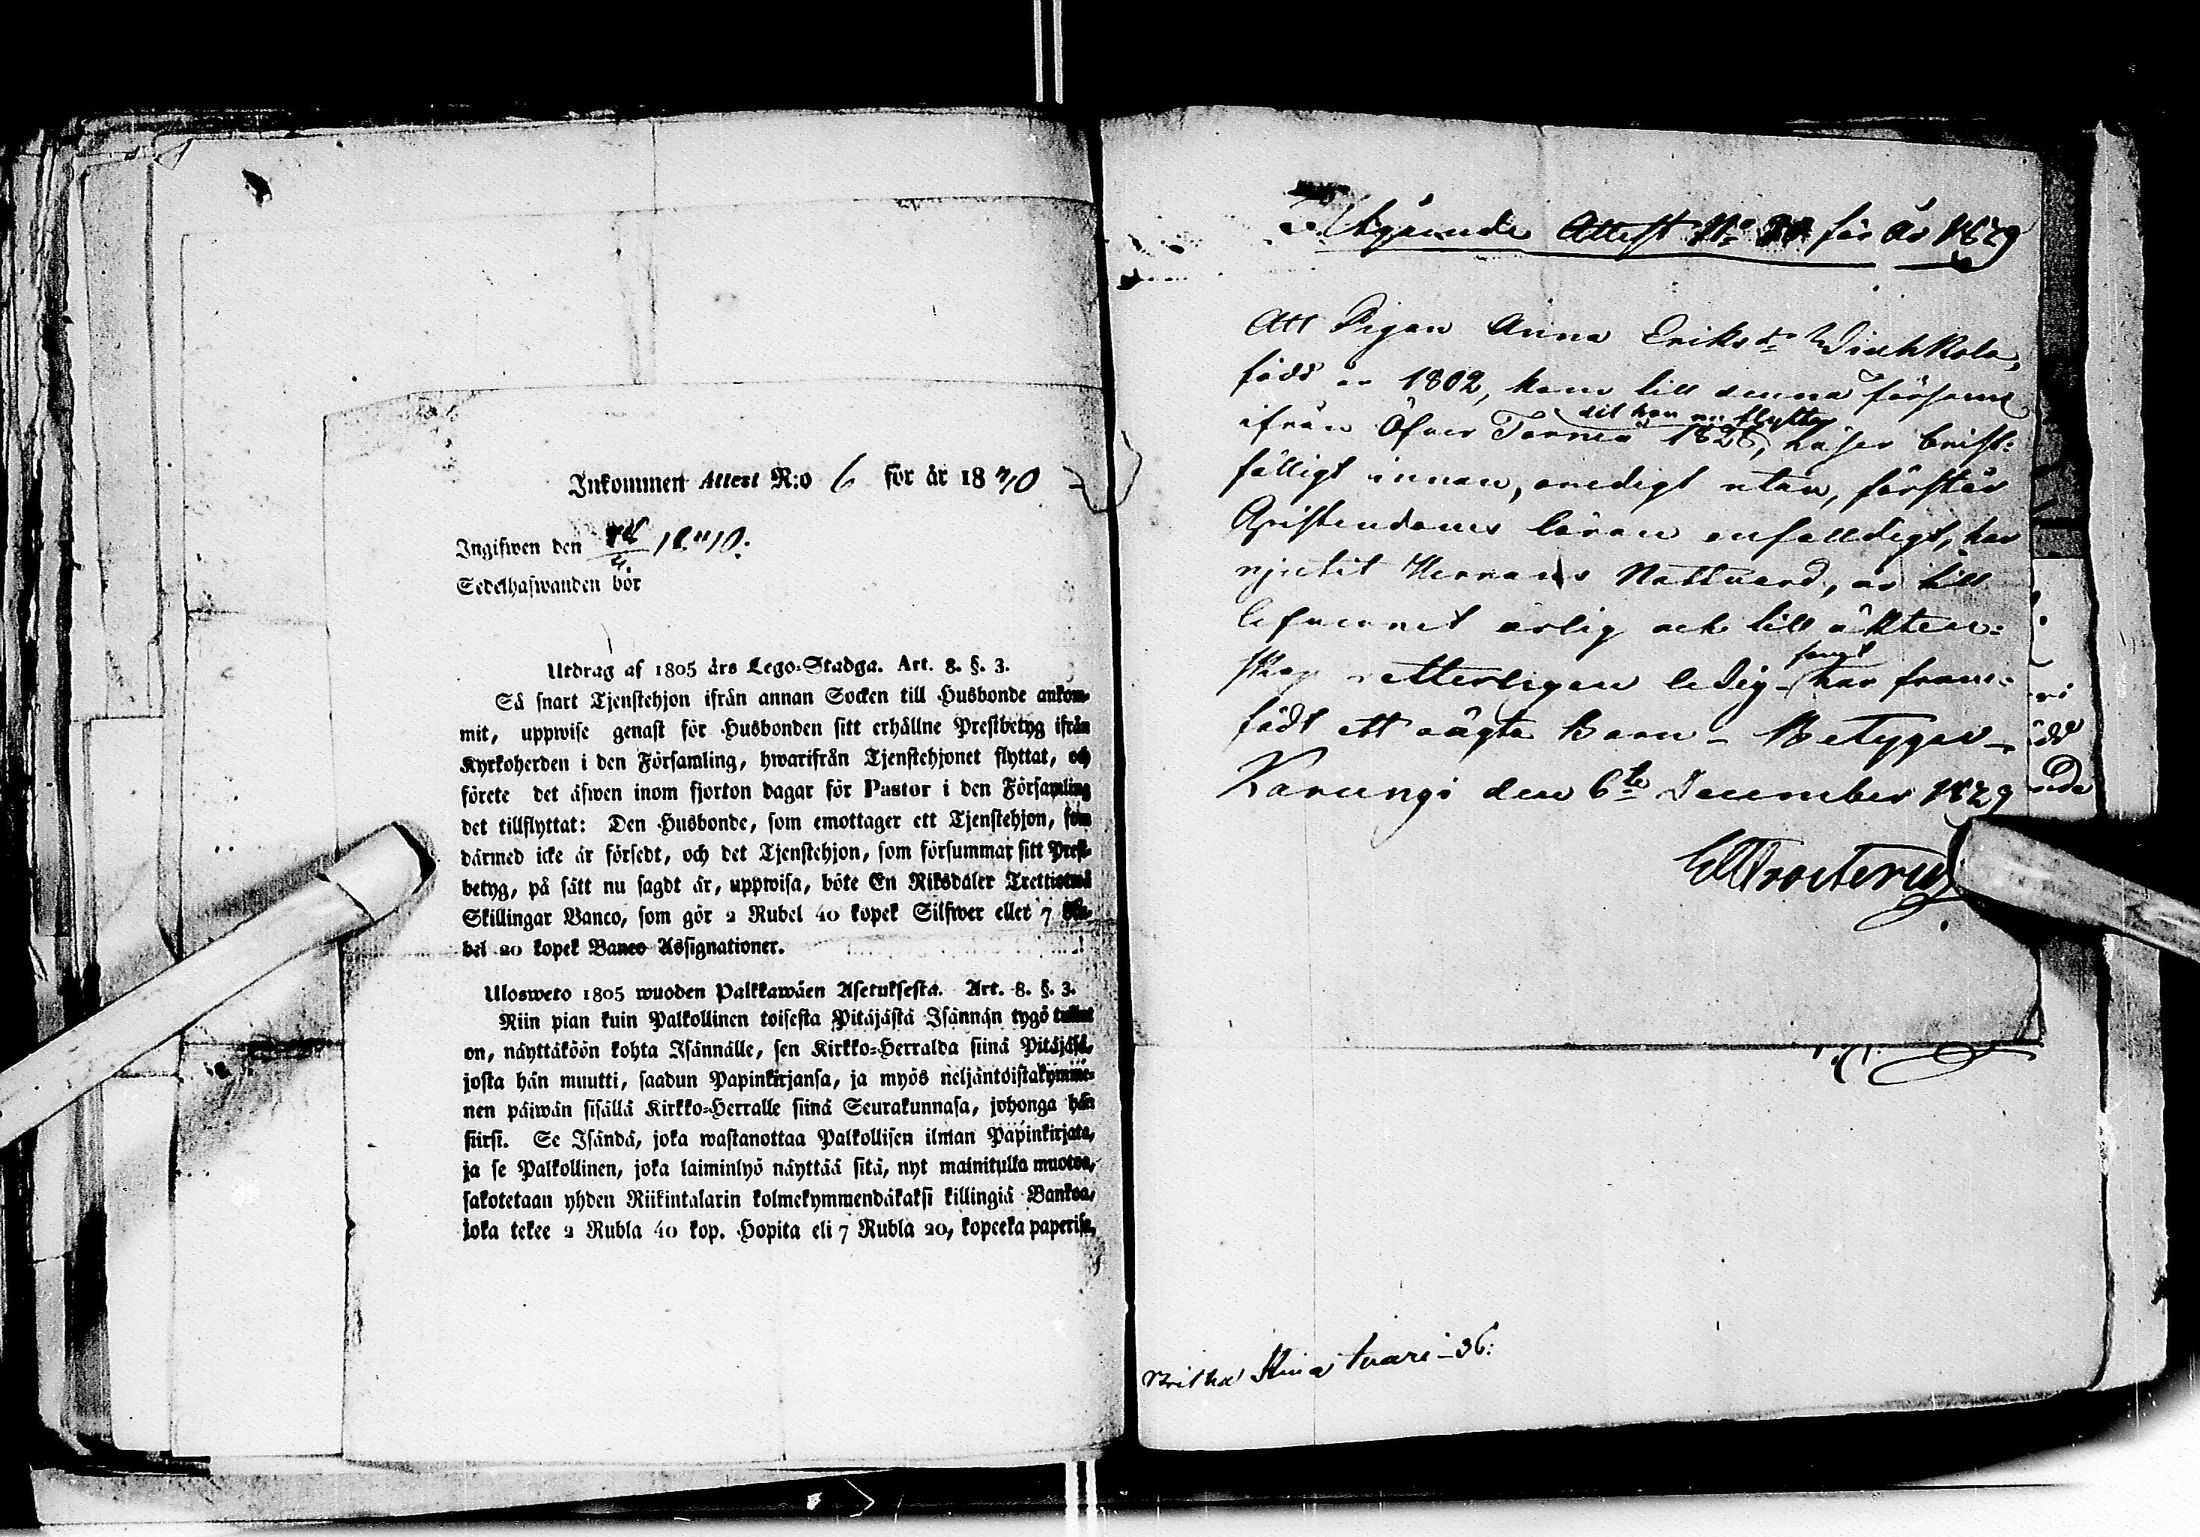 Inkommen Attest N:o 6 för år 1840
Ingifwen den 18 40.
Sedelhafwanden bör
Utdrag af 1805 års Lego-Stadga. Art. 8. §. 3.
Så snart Tjenstehjon ifrån annan Socken till Husbonde ankom-
mit, uppwise genast för Husbonden sitt erhållne Prestbetyg ifrån
Kyrkoherden i den Församling, hwarifrån Tjenstehjonet flyttat, och
förete det äfwen inom fjorton dagar för Pastor i den Församling
det tillflyttat: Den Husbonde, som emottager ett Tjenstehjon, som
därmed icke är försedt, och det Tjenstehjon, som försummar sitt Prest-
betyg, på sätt nu sagdt är, uppwisa, böte En Riksdaler Trettiotwå
Skillingar Banco, som gör 2 Rubel 40 kopek Silfwer eller 7 Ru-
bel 20 kopek Banco Assignationer.
Ulosweto 1805 wuoden Palkkawäen Asetuksesta. Art. 8. §. 3.
Niin pian kuin Palkollinen toisesta Pitäjästä Isännän tygö tullut
on, näyttäköön kohta Isännälle, sen Kirkko-Herralda siinä Pitäjäsä,
josta hän muutti, saadun Papinkirjansa, ja myös neljäntoistakymme-
nen päiwän sisällä Kirkko-Herralle siinä Seurakunnasa, johonga hän
siirsi. Se Isändä, joka wastanottaa Palkollisen ilman Papinkirjata,
ja se Palkollinen, joka laiminlyö näyttää sitä, nyt mainitulla muotoa,
sakotetaan yhden Riikintalarin kolmekymmendäkaksi killingiä Bankoa,
joka tekee 2 Rubla 40 kop. Hopita eli 7 Rubla 20, kopeeka paperisa,
Utgående Attest No för År 1829
Att Pigan Anna Eriksdr
född år 1802, kom till denna församl
dit hon nu flyttar
ifrån Öfver Torneå 1828, läser brist-
fälligt innan, oredigt utan, förstår
Christendoms läran enfalldigt, har
njutit Herrans Nattvard, är till
lefvernet ärlig och till äkten-
samt
skap vetterligen ledig - har fram-
födt ett oägta barn - Betygar -
Karungi den 6te December 1829
Britha Stina tvari - 36: